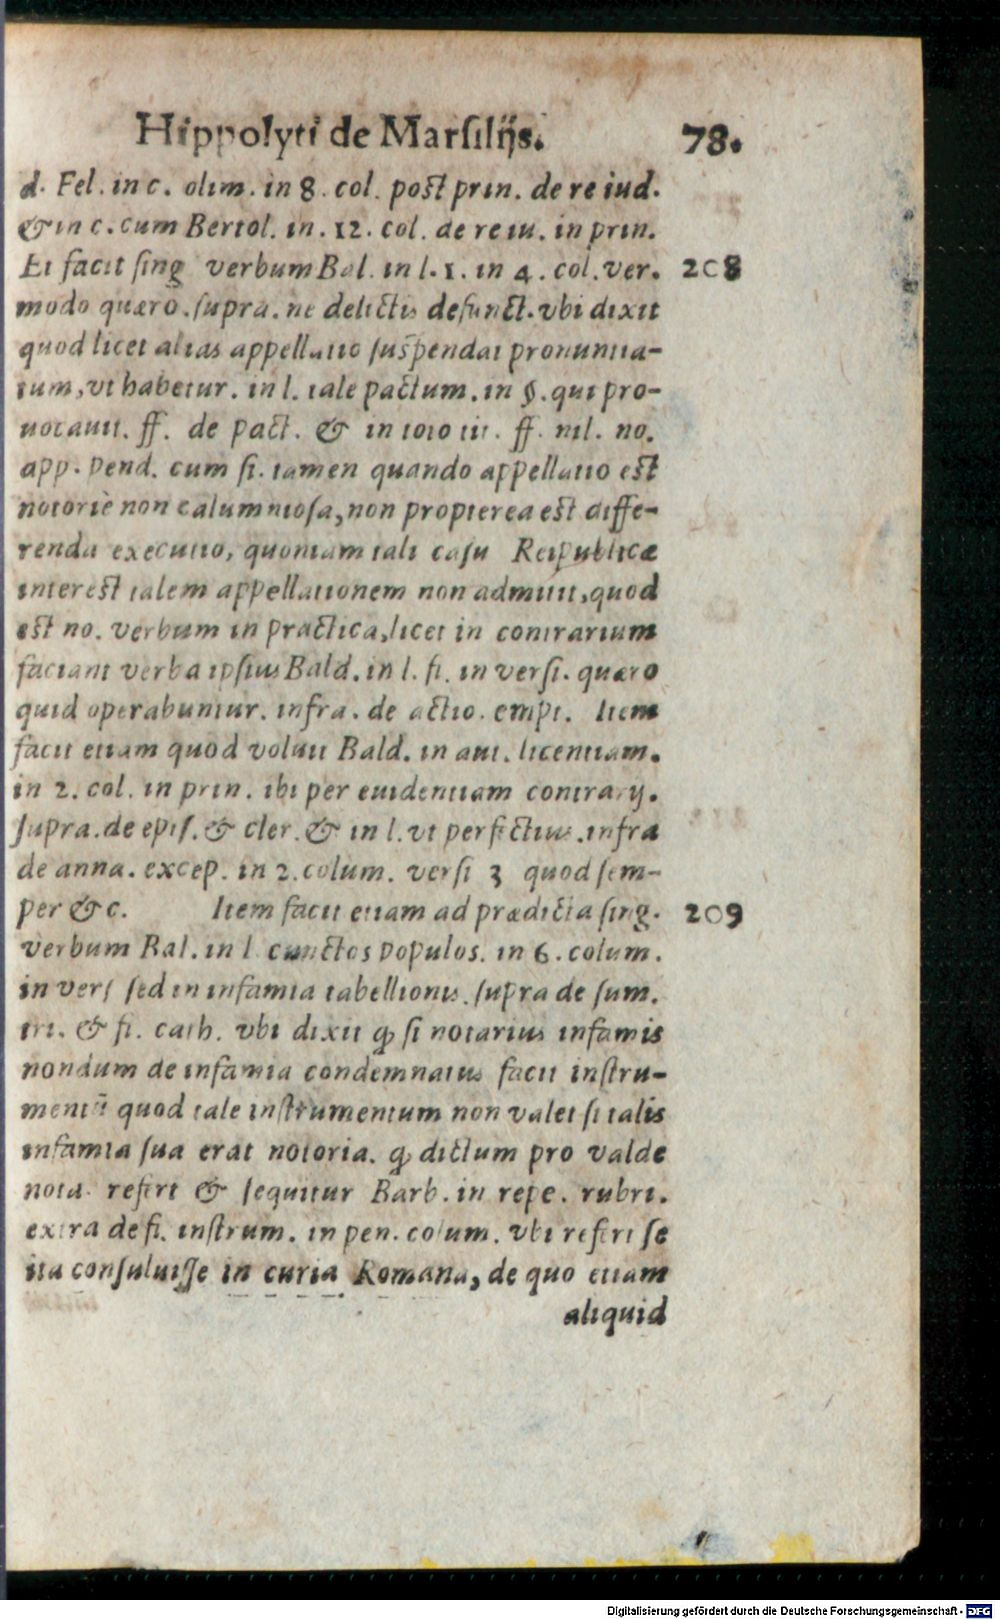 Hippolyti de Marſilijs. 78.
d. Fel. in c. olim. in 8. col. post prin. de re iud.
& in c. cum Bertol. in. 12. col. de re iu. in prin.
Et facit ſing verbum Bal. in l. 1. in 4. col. ver. 208
modo quæro. ſupra. ne delictis defunct. vbi dixit
quod licet alias appellatio ſuſpendat pronuntia-
tum, vt habetur. in l. tale pactum. in §. qui pro-
uocauit. ff. de pact. & in toto tit. ff. nil. no.
app. pend. cum ſi. tamen quando appellatio est
notoriè non calumnioſa, non propterea est diffe-
renda executio, quoniam tali caſu Reipublicæ
interest talem appellationem non admitti, quod
est no. verbum in practica, licet in contrarium
faciant verba ipſius Bald. in l. fi. in verſi. quæro
quid operabuntur. infra. de actio. empt. Item
facit etiam quod voluit Bald. in aut. licentiam.
in 2. col. in prin. ibi per euidentiam contrarij.
ſupra. de epiſ. & cler. & in l. vt perfectius. infra
de anna. excep. in 2. colum. verſi 3 quod ſem-
per &c. Item facit etiam ad prædicta ſing. 209
verbum Bal. in l cunctos populos. in 6. colum.
in verſ ſed in infamia tabellionis. ſupra de ſum.
tri. & fi. cath. vbi dixit ꝙ ſi notarius infamis
nondum de infamia condemnatus facit inſtru-
mentū quod tale inſtrumentum non valet ſi talis
infamia ſua erat notoria. ꝙ dictum pro valde
nota. refert & ſequitur Barb. in repe. rubri.
extra de fi. inſtrum. in pen. colum. vbi refert ſe
ita conſuluiſſe in curia Romana, de quo etiam
aliquid
Digitalisierung gefördert durch die Deutsche Forschungsgemeinschaft - DFG